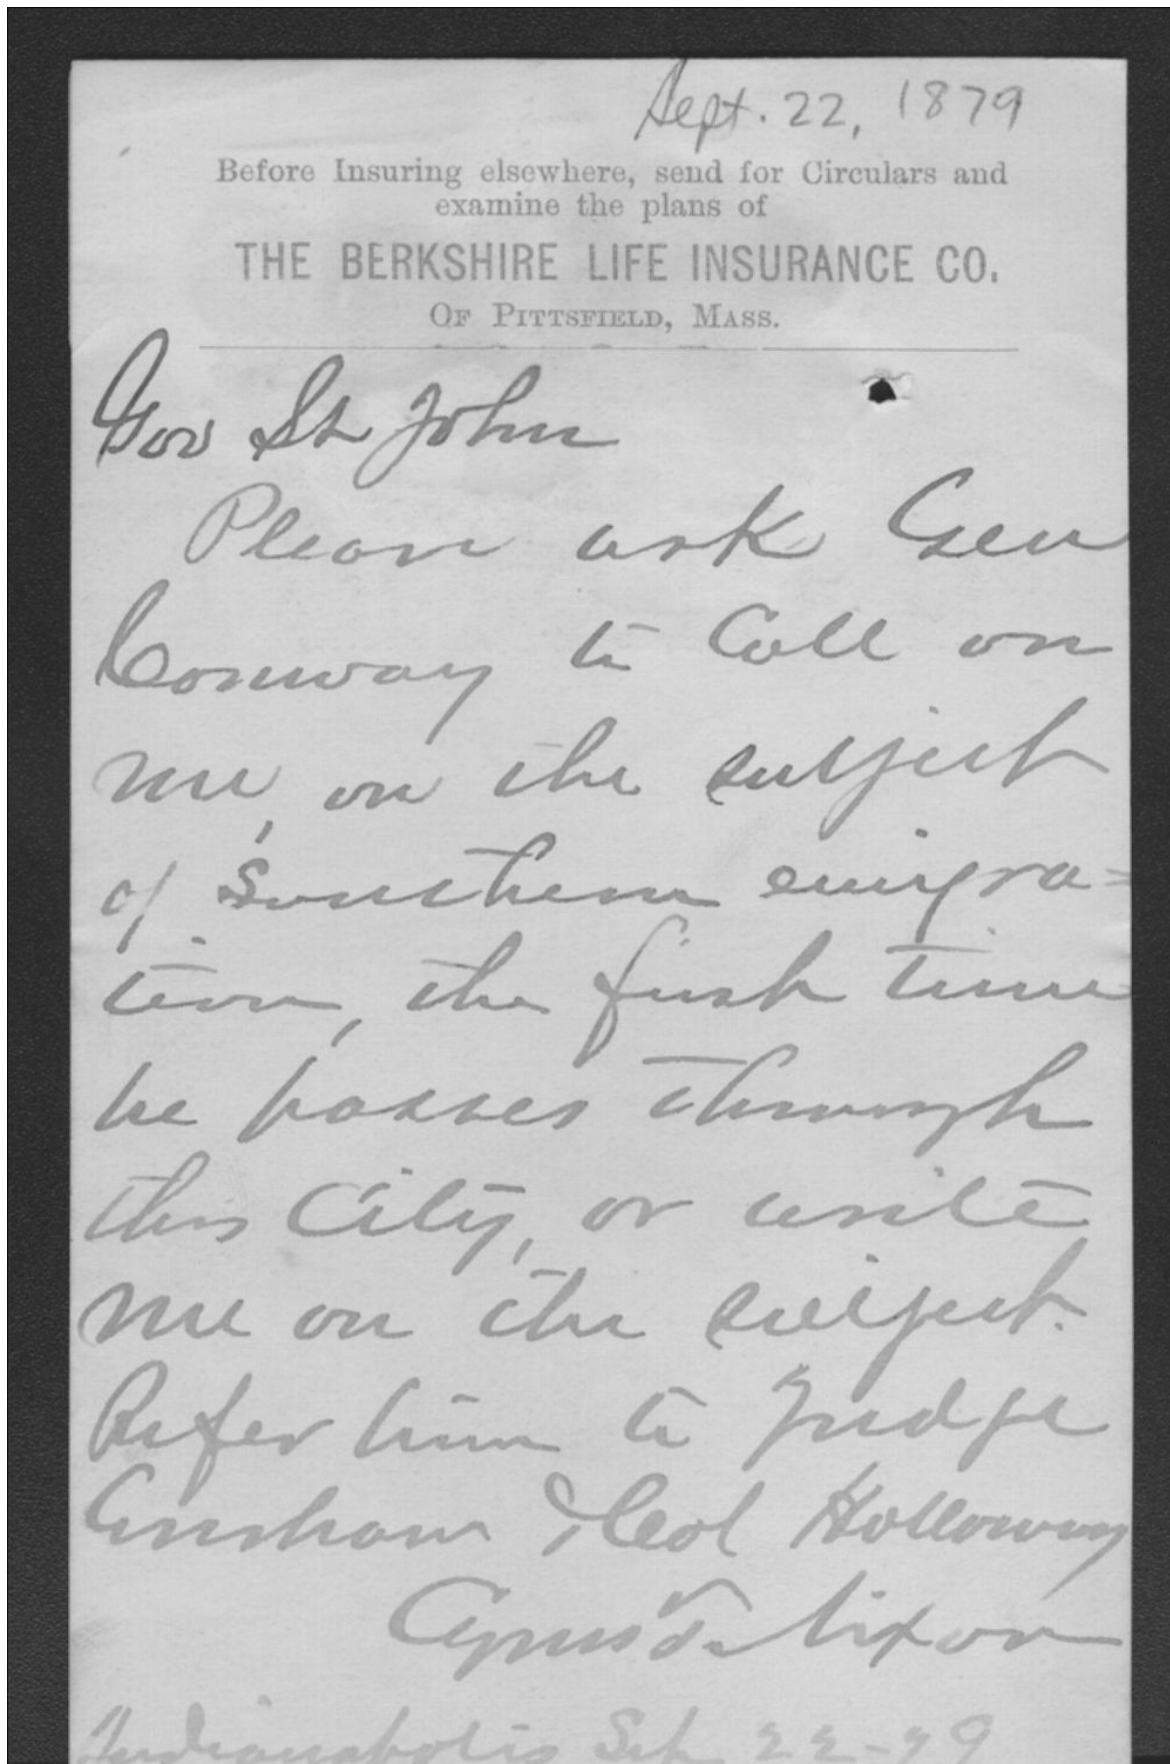 Sept. 22, 1879
Before Insuring elsewhere, send for Circulars and
examine the plans of
THE BERKSHIRE LIFE INSURANCE CO.
OF PITTSFIELD, MASS.
Gov St John
Please ask Gen
Conway to Call on
me, on the subject
of Southern emigra=
tion, the first time
he passes through
this City, or write
me on the subject.
Refer him to Judge
& Col Holloway
Cyrus T. Nixon
Indianapolis Sept 22-79